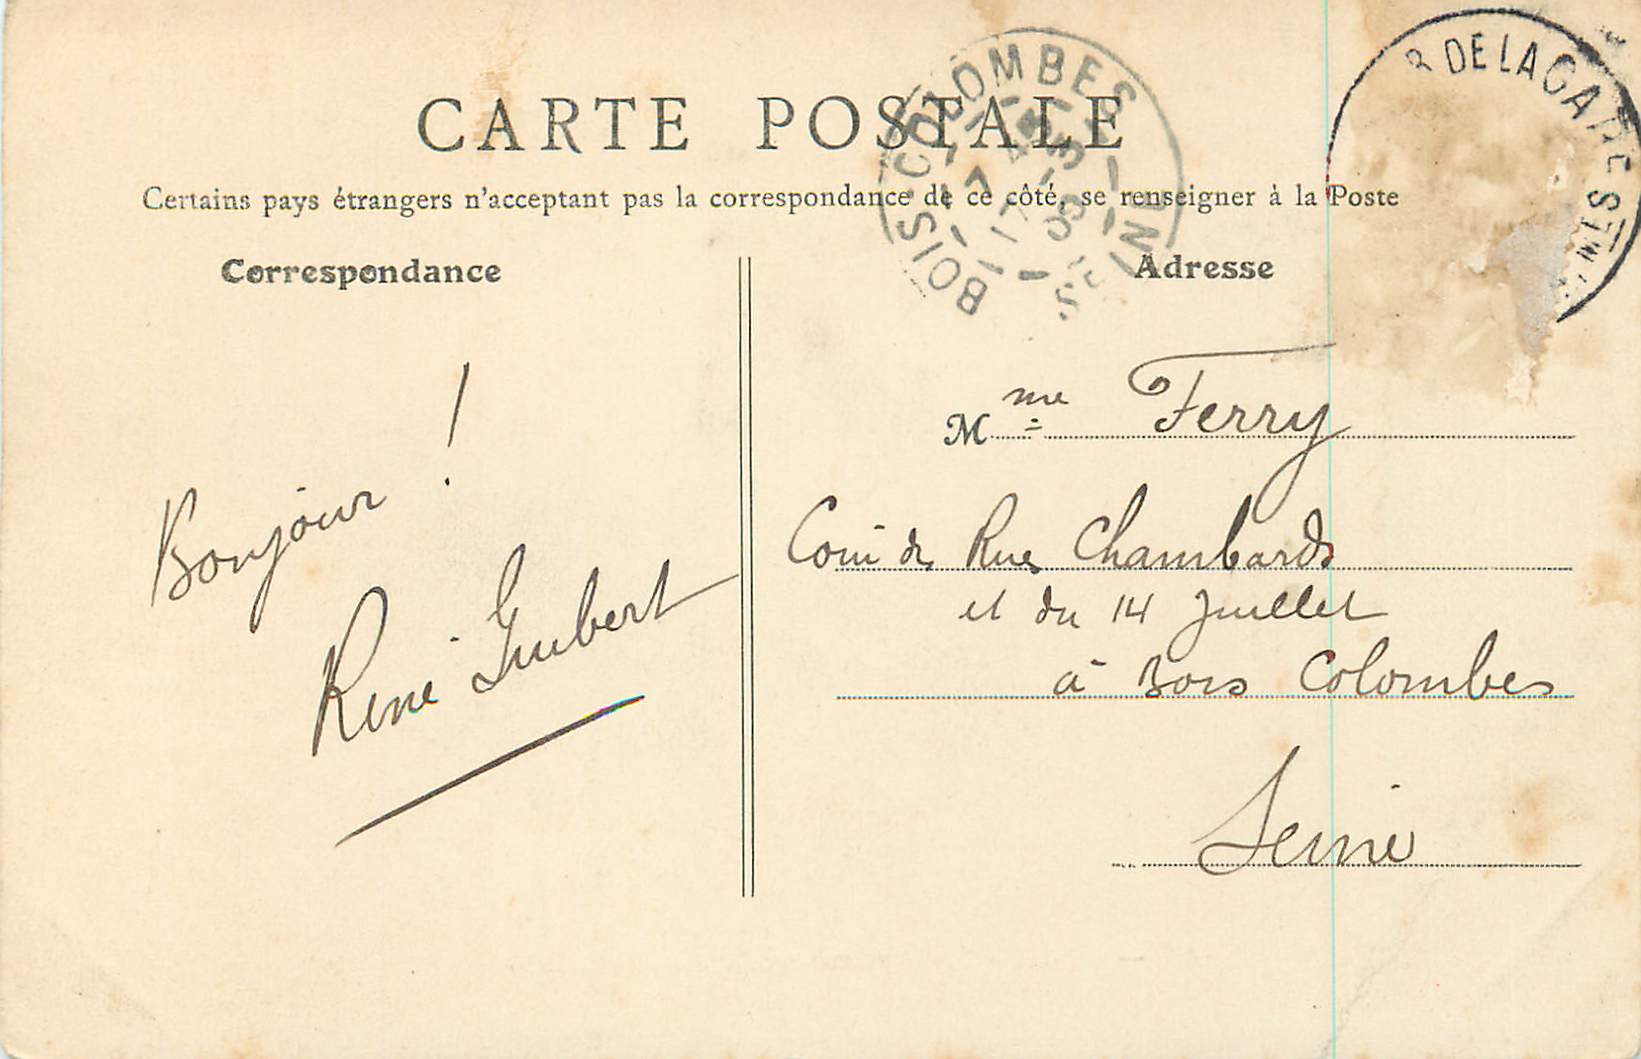 CARTE POSTALE
Certains pays étrangers n'acceptant pas la correspondance de ce côté, se renseigner à la Poste
Correspondance
Bonjour !
René Guibert
Adresse
Mme Ferry
Coin des Rues Chambards
et du 14 Juillet
à Bois Colombes
Seine
BOIS-COLOMBES
R DE LA GARE ST